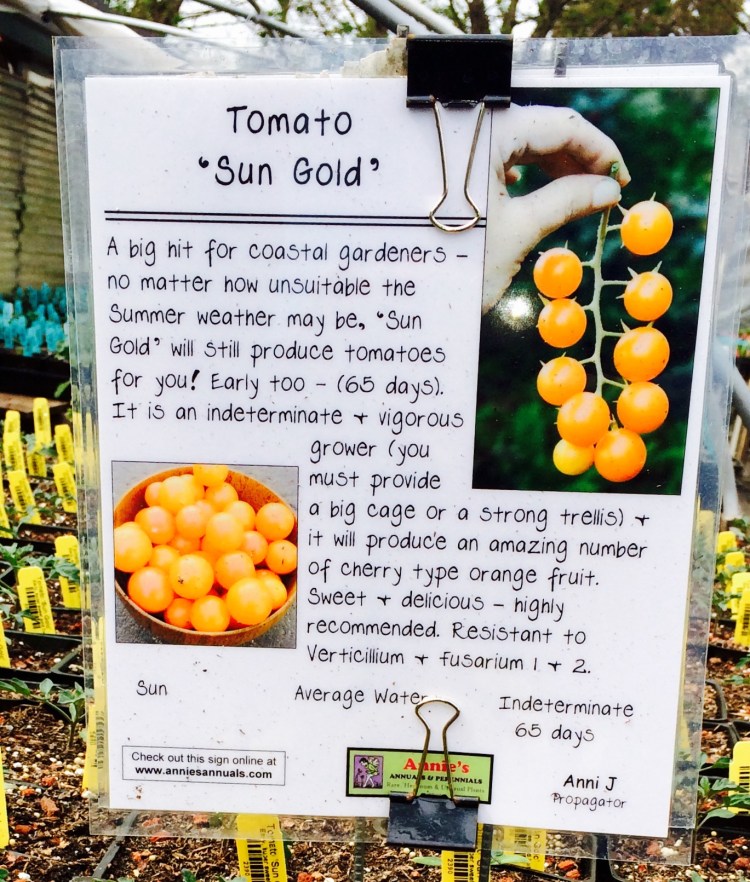 Tomato
"Sun Gold"
A big hit for coastal gardeners -
no matter how unsuitable the
Summer weather may be, "Sun
Gold" will still produce tomatoes
for you! Early too - (65 days).
It is an indeterminate + vigorous
grower (you
must provide
a big cage or a strong trellis) +
it will produce an amazing number
of cherry type orange fruit.
Sweet + delicious - highly
recommended. Resistant to
Verticillium + fusarium 1 + 2.
Sun
Average Water
Indeterminate
65 days
Check out this sign online at
www.anniesannuals.com
Annie's
ANNUALS & PERENNIALS
Rare, Heirloom & Unusual Plants
Anni J
Propagator